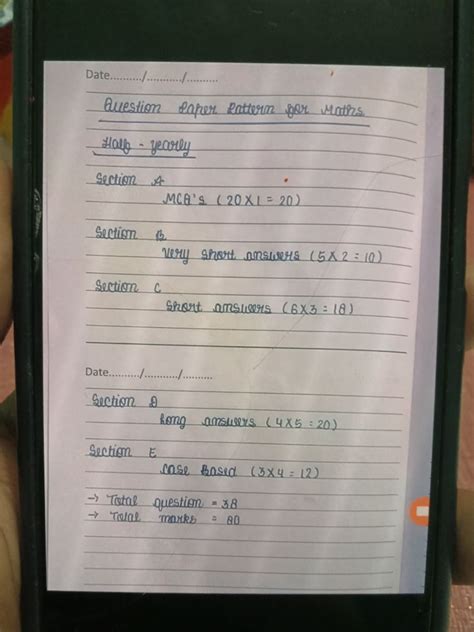 Date........../........../..........
Question Paper Pattern for Maths
Half - yearly
Section A
MCQ's (20 X 1 = 20)
Section B
Very short answers (5 X 2 = 10)
Section C
Short answers (6 X 3 = 18)
Date........../........../..........
Section D
Long answers (4 X 5 = 20)
Section E
Case Based (3 X 4 = 12)
→ Total question = 38
→ Total marks = 80